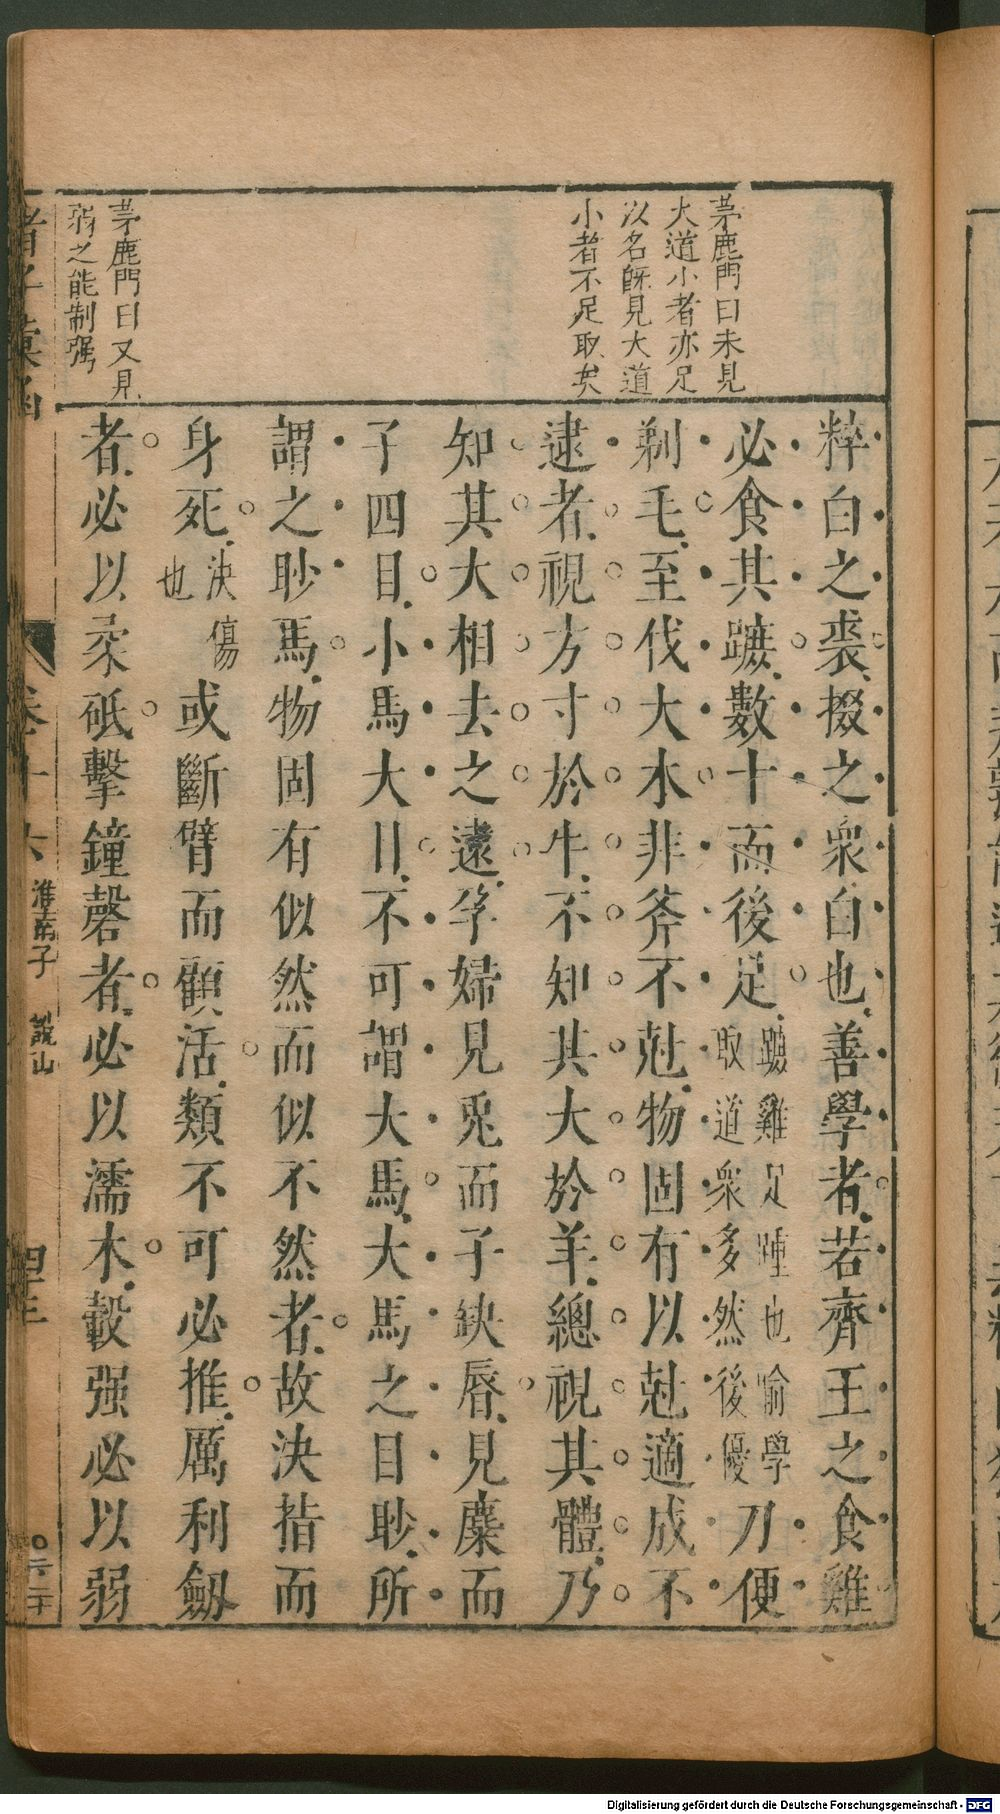 茅鹿門曰未見
大道小者亦足
以名旣見大道
小者不足取矣
茅鹿門曰又見
弱之能制强
粹白之裘掇之衆白也善學者若齊王之食雞
必食其蹠數十而後足蹠雞足踵也喻學取道衆多然後優刀便
剃毛至伐大木非斧不尅物固有以尅適成不
逮者視方寸於牛不知其大於羊總視其體乃
知其大相去之遠孕婦見兎而子缺唇見麋而
子四目小馬大目不可謂大馬大馬之目眇所
謂之眇馬物固有似然而似不然者故決指而
身死決傷也或斷臂而顧活類不可必推厲利劒
者必以柔砥擊鐘磬者必以濡木轂强必以弱
諸子彙函
卷十六
淮南子 說山
四十三